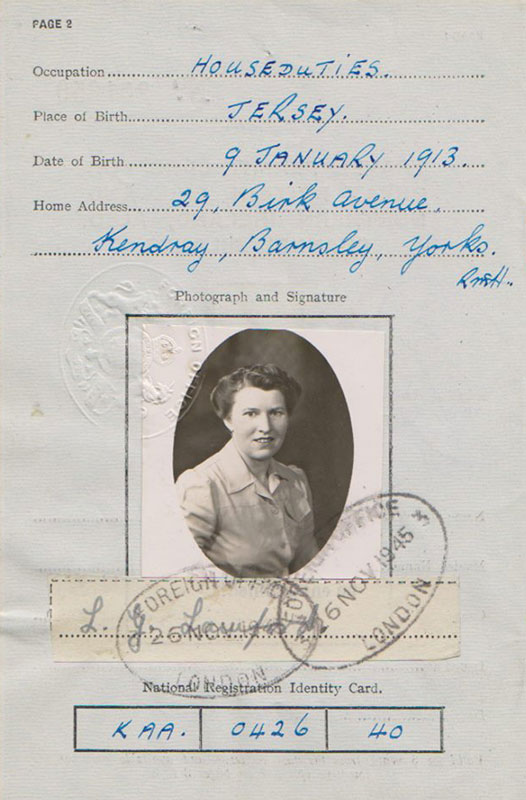 PAGE 2
Occupation HOUSEDUTIES.
Place of Birth JERSEY.
Date of Birth 9 JANUARY 1913.
Home Address 29, Birk Avenue,
Kendray, Barnsley, Yorks.
Photograph and Signature
FOREIGN OFFICE
26 NOV 1945
LONDON
3
L. J.
FOREIGN OFFICE
26 NOV
LONDON
National Registration Identity Card.
KAA. 0426 40